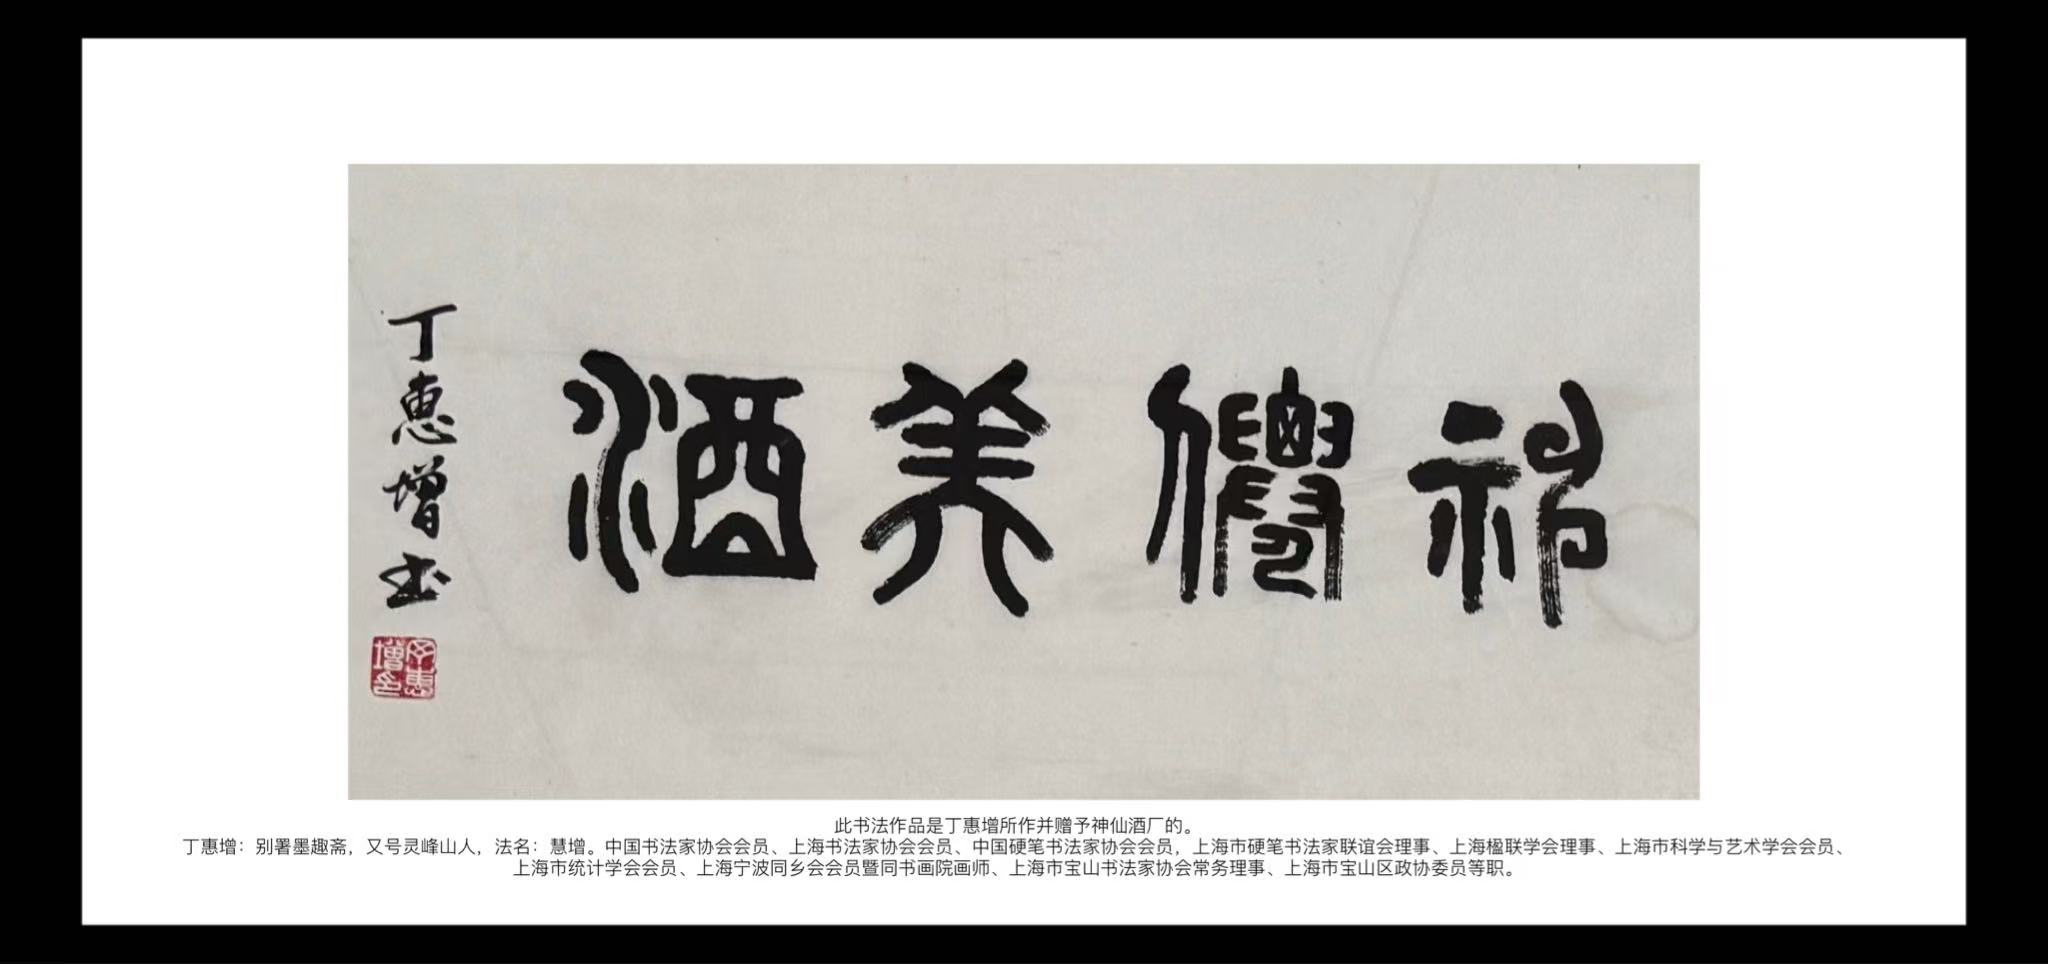 神僊美酒
丁惠增书
丁惠增印
此书法作品是丁惠增所作并赠予神仙酒厂的。
丁惠增：别署墨趣斋，又号灵峰山人，法名：慧增。中国书法家协会会员、上海书法家协会会员、中国硬笔书法家协会会员，上海市硬笔书法家联谊会理事、上海楹联学会理事、上海市科学与艺术学会会员、
上海市统计学会会员、上海宁波同乡会会员暨同书画院画师、上海市宝山书法家协会常务理事、上海市宝山区政协委员等职。